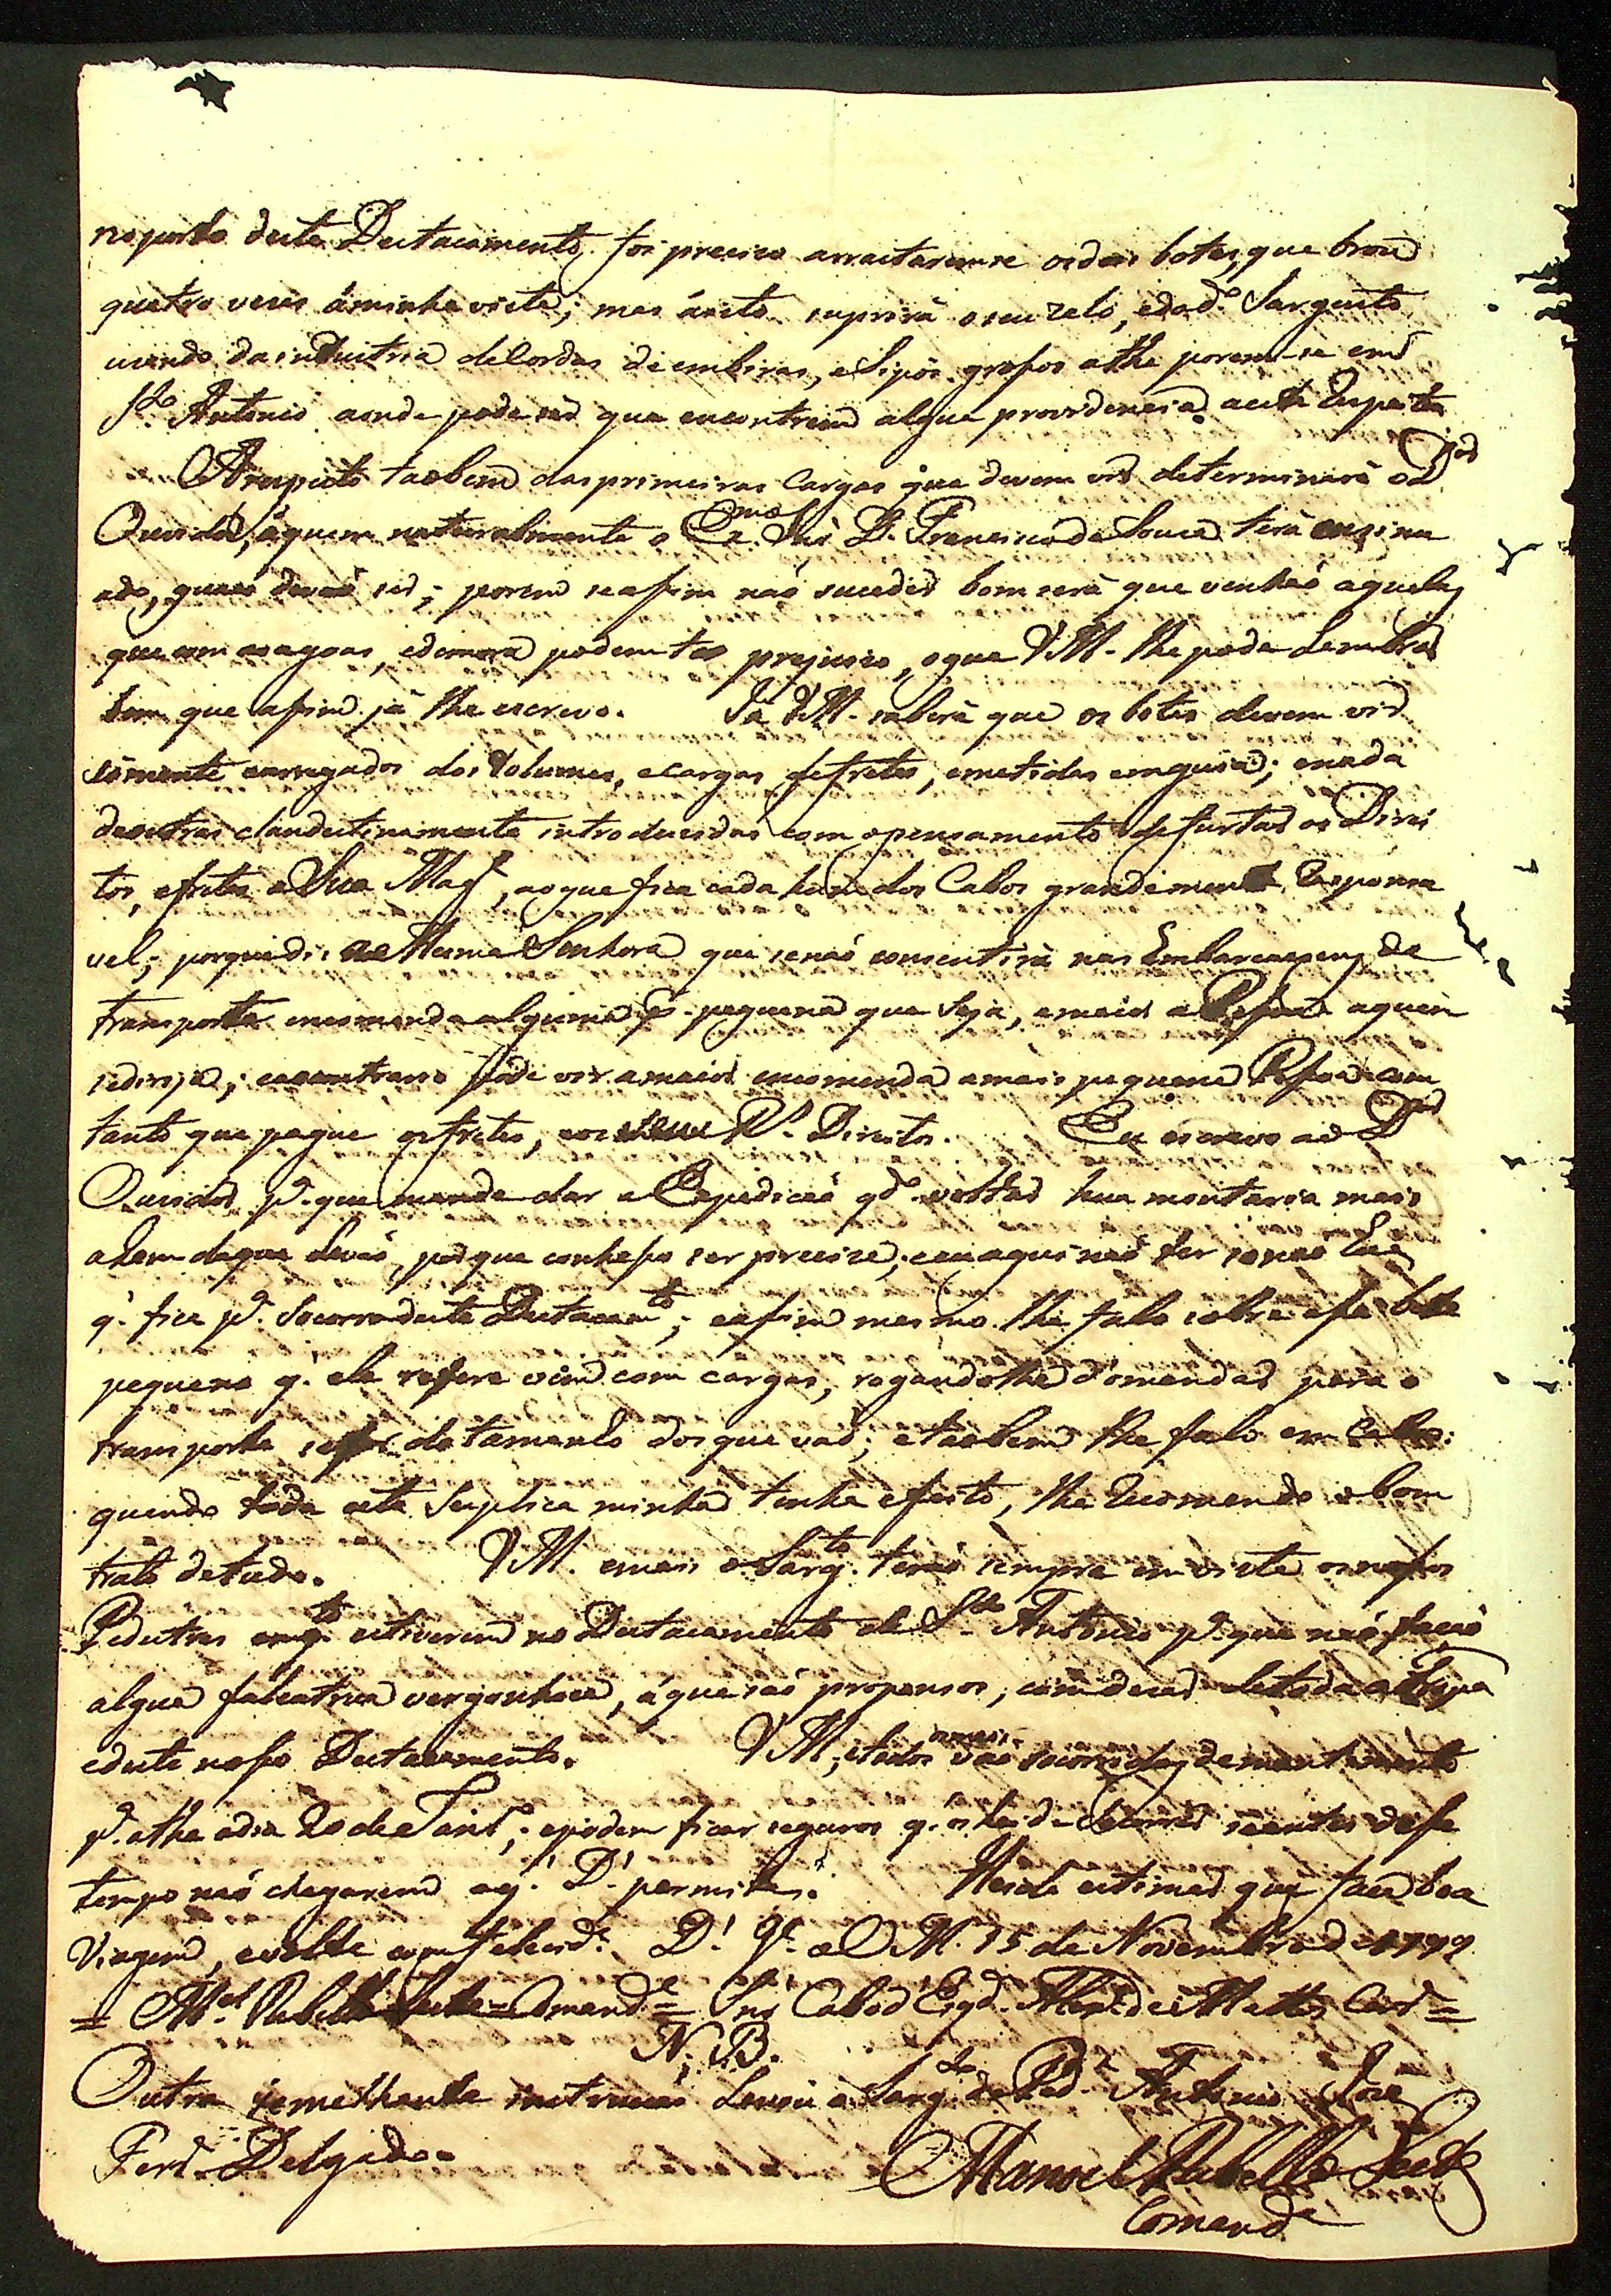 no porto deste Destacamento, foi preciso arrastaremse os dois botes, que
quatro vezes á minha vista; mas á isto suprirá o seu zelo, e do d.º Sargento
uzando da industria de Cordas de embiras, e Sipós grossos athe porem-se em
S.to Antonio aonde pode ser que encontrem algua providencia a este Respeito
A respeito taobem das primeiras Cargas que devem vir determinará o D.or
Ouvidor, á quem naturalmente o Ex.mo Snr' D. Francisco de Souza terá ensinu
ado, quaes devaõ ser; porem se assim naõ suceder bom será que venhaõ aquelas
que com as agoas, e demora podem ter prejuizo, o que VM. lhe pode Lembrar
bem que assim já lhe escrevo. Já VM. saberá que os botes devem vir
sómente carregados dos Volumes, e cargas de fretes, e metidas em guia; e nada
de outras clandestinamente introduzidas com o pensamento de furtar os Direi
tos, e fretes a Sua Mag.e, ao que fica cada hum dos Cabos grandemente Responsa
vel; porque diz a Mesma Senhora que se naõ consentirá nas Embarcaçoens de
transporte encomenda alguma p.r pequena que seja, e maior a Pessoa aquem
se dirija; e ao contrario pode vir a maior encomenda a mais pequena Pessoa com
tanto que pague os fretes, e os R.s Direitos. Eu escrevo ao D.or
Ouvidor p.ª que mande dar a Expediçaõ q.do voltar hua montaria mais
alem da que Levaõ, porque conheso ser precisa; e eu aqui naõ ter senaõ hua
q. fica p.ª Socorro deste Destacam.to; e assim mesmo lhe falo sobre esse bote
pequeno q. ele refere vem com cargas, rogandolhe o mandar para o
transporte do tamanho dos que vaõ; e taobem lhe falo em Cabos:
quando toda esta Suplica minha tenha efeito, lhe Recomendo o bom
trato de tudo. VM. e mais o Sarg.to teraõ sempre em vista os nossos
Pedestres em q.to estiverem no Destacamento de S.to Antonio p.ª que naõ façaõ
algua falcatrua vergonhosa, á que saõ propensos, em de toda a Tropa
e deste nosso Destacamento. VM., e todos os mais vaõ socorridos de mantimento
p.ª athe o dia 20 de Janr.º; e podem ficar seguros q. os hei de Socorrer se antes desse
tempo naõ chegarem o q. D.s permita. Hei de estimar que fasa boa
Viagem, e volte com felicid.e D.s G.e a VM. 15 de Novembro de 1799
= M.el Rebello Leite = Comand.e = Snr' Cabo d'Esq.ª de Mattos Car.º =
N. B.
Outra semelhante instrucaõ Levou o Sarg.to de Ped.s Antonio José
Ferr.ª Delgado.
Manoel Rebello Leite
Comand.e